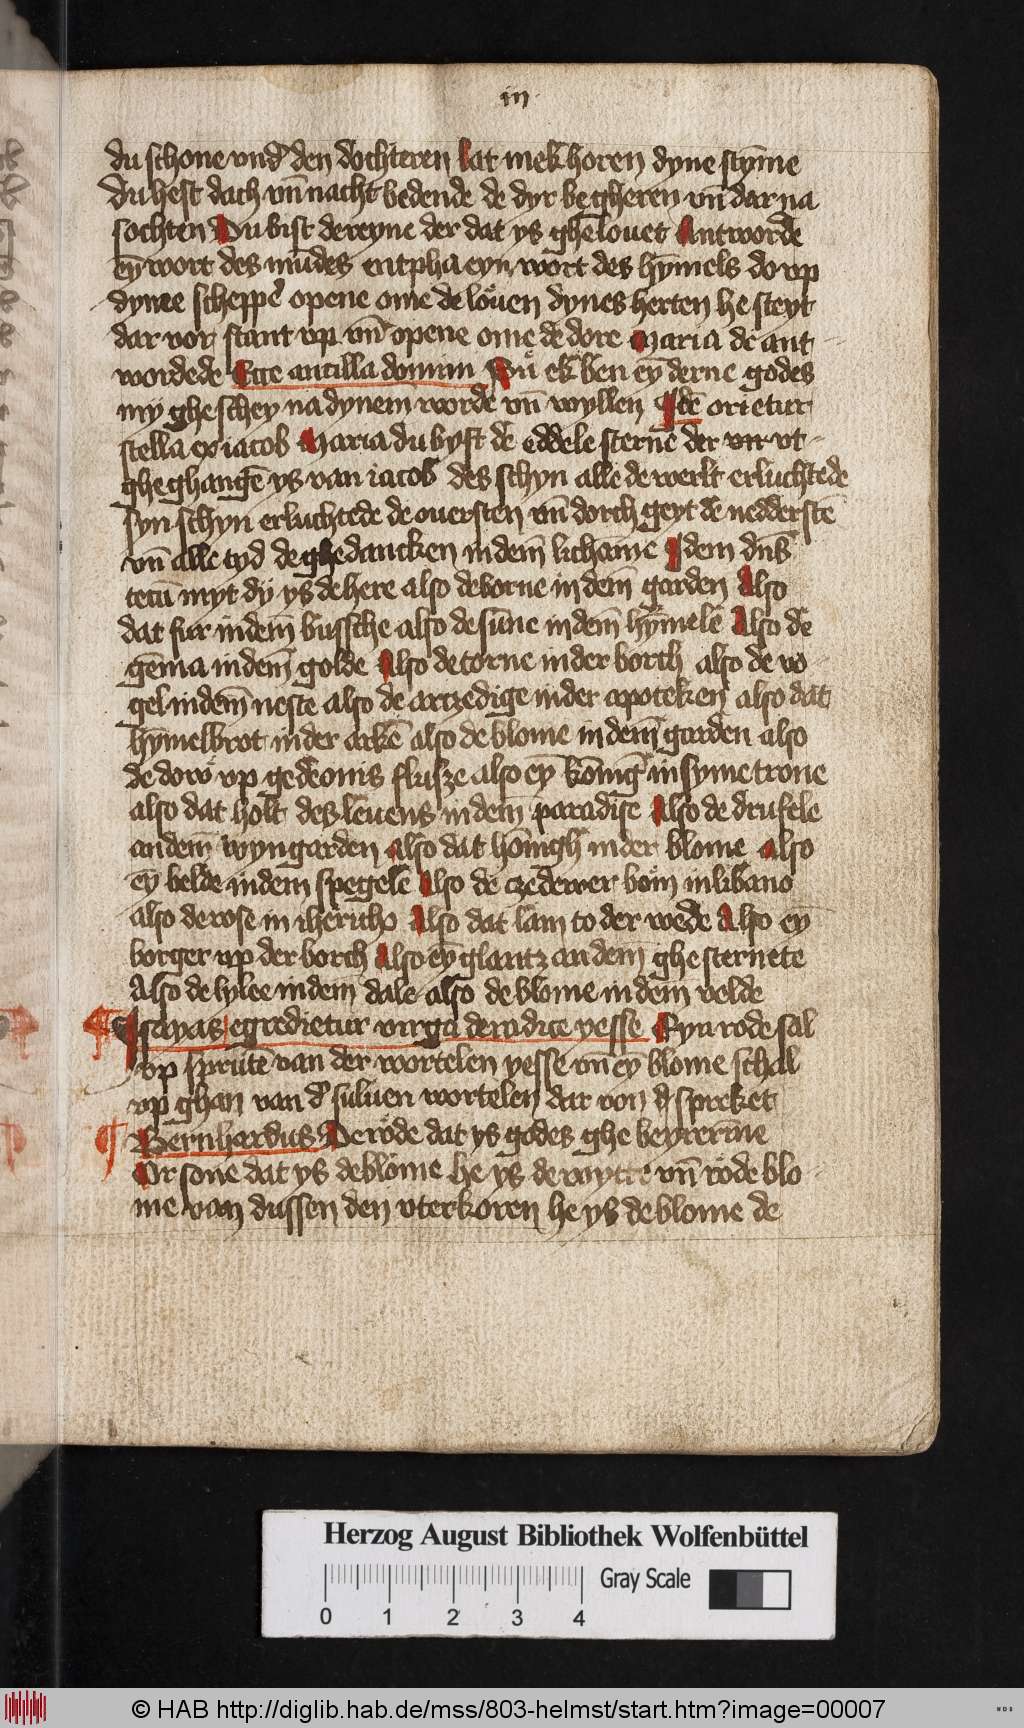 iij
du schone vnd̕ den dochteren lat mek horen dyne stȳme
Du hest dach vn̄ nacht bedende de dyr begheren vn̄ dar na
sochten Du bist de reyne der dat ys ghelouet Antworde
eȳ wort des mūdes entpha eyn wort des hȳmels do vp
dyme scheppe᷑ opene ome de louen dynes herten he steyt
dar vor stant vp vn̄ opene ome de dore Maria de ant
wordede Ecce ancilla domini Nu ek ben eȳ derne godes
my ghe schey na dynem̄ worde vn̄ wyllen Idē orietur
stella ex iacob Maria du byst de eddele sterne der vt
ghe ghangē ys van iacob des schyn alle de werlt erluchtede
syn schyn erluchtede de ouersten vn̄ dorch geyt de nedderstē
vn̄ alle tyd de ghedancken in dem̄ lichāme Idem dn̄s
tecū myt dy ys de here also de borne in dem̄ garden Also
dat fur in dem̄ bussche also de sūne in dem̄ hȳmele Also de
gēma in dem̄ golde Also de torne in der borch also de vo
gel in dem̄ neste also de artzedige in der apoteken also dat
hȳmelbrot in der arkē also de blome in dem̄ garden also
de dow vp gedeonis flusze also eȳ kōnig in syme trone
also dat holt des leuens in dem̄ paradise Also de drufele
an dem̄ wyngarden also dat hōnigh in der blome also
eȳ belde in dem̄ spegele Also de czedewer bom in libano
also de rose in ihericho Also dat lam to der wede Also eȳ
borger vp der borch Also eȳ glantz an dem̄ ghesternete
Also de lylee in dem̄ dale also de blome in dem̄ velde
Isayas egredietur virga de radice yesse Eyn rode sal
vp sprute van der wortelen yesse vn̄ eȳ blome schal
vp ghan van d̕ suluen wortelen dar von spreket
Bernhardus De rode dat ys godes ghe beyrerīne
Or sone dat ys de blome he ys de wytte vn̄ rode blo
me van dussen den vterkoren he ys de blome de
Herzog August Bibliothek Wolfenbüttel
Gray Scale
0 1 2 3 4
© HAB http://diglib.hab.de/mss/803-helmst/start.htm?image=00007